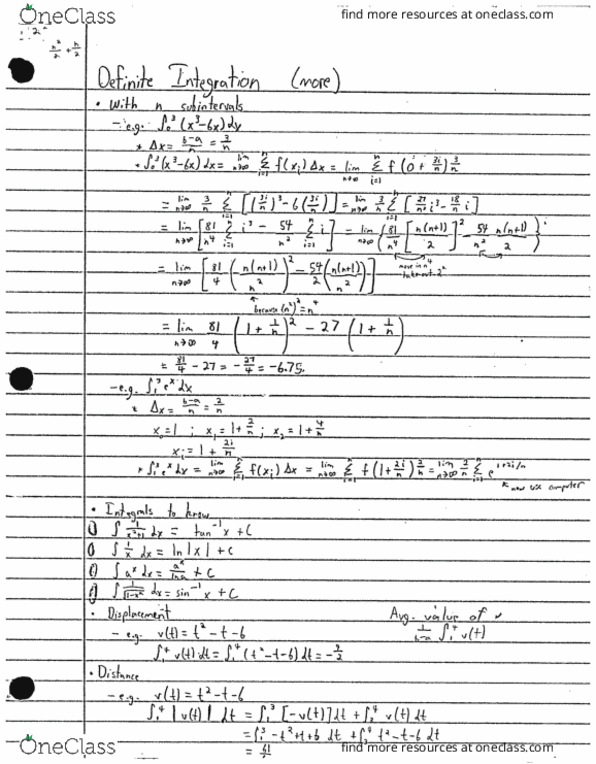 OneClass
find more resources at oneclass.com
n²/2 + n/2
Definite Integration (more)
• With n subintervals
- e.g. ∫₀³ (x³-6x)dx
* Δx = b-a/n = 3/n
* ∫₀³(x³-6x)dx = lim n→∞ Σ i=1 n f(xᵢ)Δx = lim n→∞ Σ i=1 n f(0 + 3i/n) 3/n
= lim n→∞ 3/n Σ i=1 n [(3i/n)³ - 6(3i/n)] = lim n→∞ 3/n Σ i=1 n [27/n³ i³ - 18/n i]
= lim n→∞ [81/n⁴ Σ i=1 n i³ - 54/n² Σ i=1 n i] = lim n→∞ {81/n⁴ [n(n+1)/2]² - 54/n² n(n+1)/2}
= lim n→∞ [81/4 (n(n+1)/n²)² - 54/2 (n(n+1)/n²)]
move in n⁴
take out 2²
because (n²)² = n⁴
= lim n→∞ 81/4 (1 + 1/n)² - 27 (1 + 1/n)
= 81/4 - 27 = -27/4 = -6.75
- e.g. ∫₁³ eˣ dx
* Δx = b-a/n = 2/n
x₀ = 1 ; x₁ = 1+2/n ; x₂ = 1+4/n
xᵢ = 1 + 2i/n
* ∫₁³ eˣ dx = lim n→∞ Σ i=1 n f(xᵢ) Δx = lim n→∞ Σ i=1 n f(1+2i/n) 2/n = lim n→∞ 2/n Σ i=1 n e^(1+2i/n)
now use computer
• Integrals to know
∫ 1/x²+1 dx = tan⁻¹x + C
∫ 1/x dx = ln|x| + C
∫ aˣ dx = aˣ/ln a + C
∫ 1/√1-x² dx = sin⁻¹x + C
• Displacement
Avg. value of v
- e.g. v(t) = t² - t - 6
1/b-a ∫₁⁴ v(t)
∫₁⁴ v(t) dt = ∫₁⁴ (t²-t-6) dt = -9/2
• Distance
- e.g. v(t) = t² - t - 6
∫₁⁴ |v(t)| dt = ∫₁³ [-v(t)] dt + ∫₃⁴ v(t) dt
= ∫₁³ -t²+t+6 dt + ∫₃⁴ t²-t-6 dt
OneClass
find more resources at oneclass.com